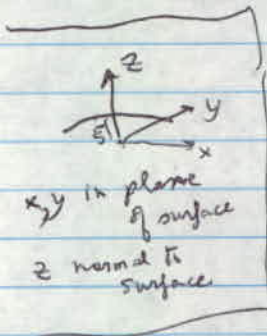 z
y
x
x, y in plane
of surface
z normal to
surface